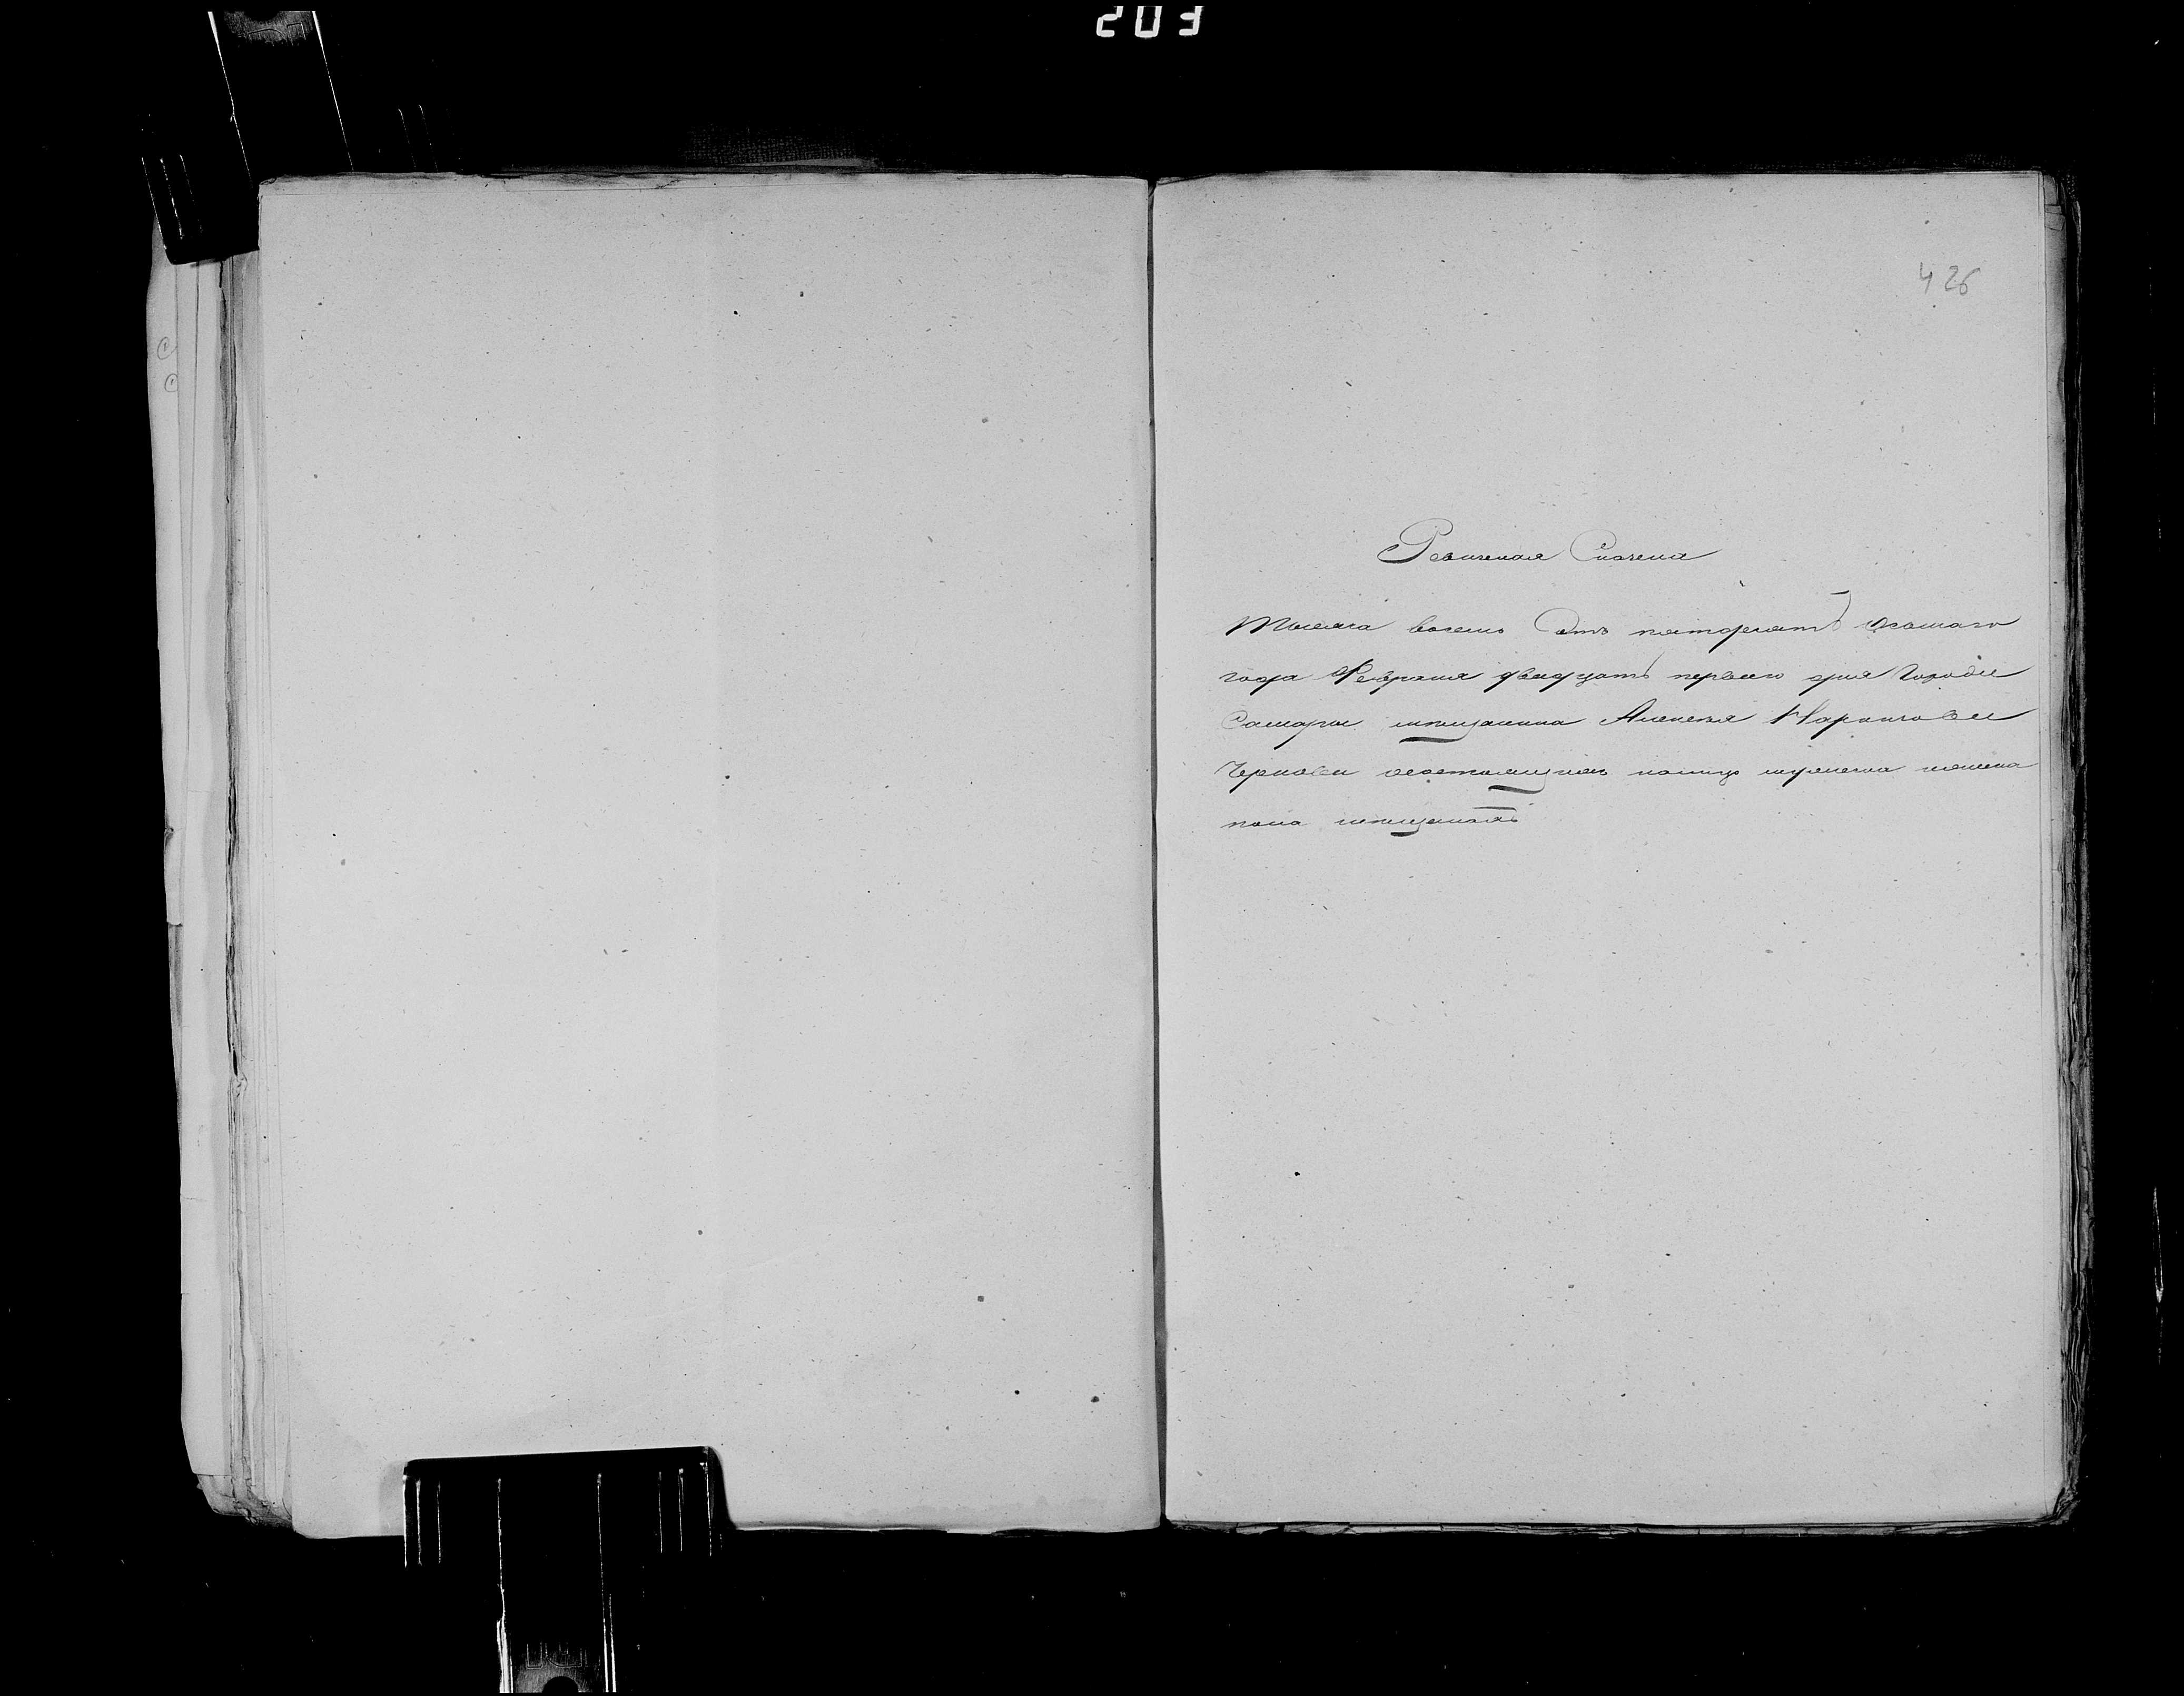 203
426
Ревизская Сказка
Тысяча восемь сотъ пятдесятъ осьмаго
года Февраля двадцать перваго дня Города
Самары мещанина Алексея
Чернова состоящихъ мужеска женска
пола мещанахъ